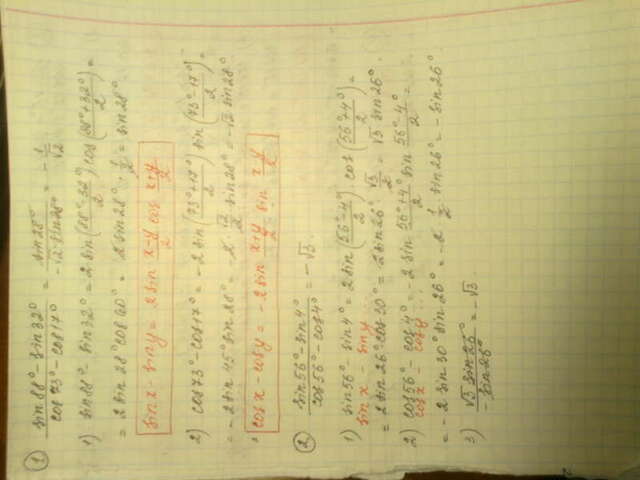 ① (sin88° - sin32°)/(cos73° - cos17°) = sin28°/(-√2 sin28°) = -1/√2
1) sin88° - sin32° = 2 sin((88°-32°)/2) cos((88°+32°)/2) =
= 2 sin28° cos60° = 2 sin28° · 1/2 = sin28°
sinx - siny = 2 sin (x-y)/2 cos (x+y)/2
2) cos73° - cos17° = -2 sin((73°+17°)/2) sin((73°-17°)/2) =
= -2 sin45° sin28° = -2 · √2/2 sin28° = -√2 sin28°
cosx - cosy = -2 sin (x+y)/2 sin (x-y)/2
② (sin56° - sin4°)/(cos56° - cos4°) = -√3.
1) sin56° - sin4° = 2 sin((56°-4°)/2) · cos((56°+4°)/2) =
sinx - siny...
= 2 sin26° cos30° = 2 sin26° · √3/2 = √3 sin26°.
2) cos56° - cos4° = -2 sin (56°+4°)/2 sin (56°-4°)/2 =
cosx - cosy...
= -2 sin30° sin26° = -2 · 1/2 sin26° = -sin26°
3) √3 sin26°/(-sin26°) = -√3.